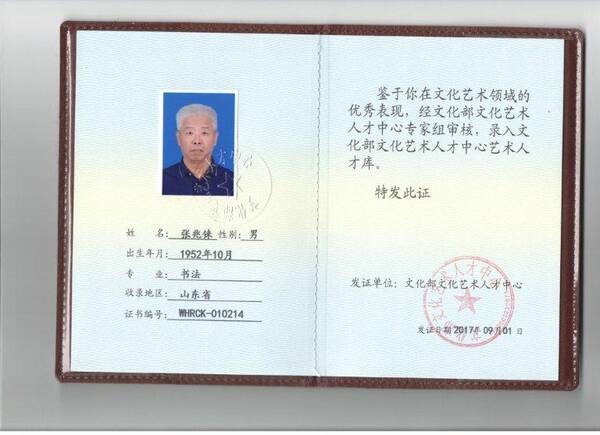 姓 名: 张兆铼 性别: 男
出生年月: 1952年10月
专 业: 书法
收录地区: 山东省
证书编号: WHRCK-010214
鉴于你在文化艺术领域的
优秀表现,经文化部文化艺术
人才中心专家组审核,录入文
化部文化艺术人才中心艺术人
才库。
特发此证
发证单位: 文化部文化艺术人才中心
文化部文化艺术人才中心
发证日期2017年09月01日